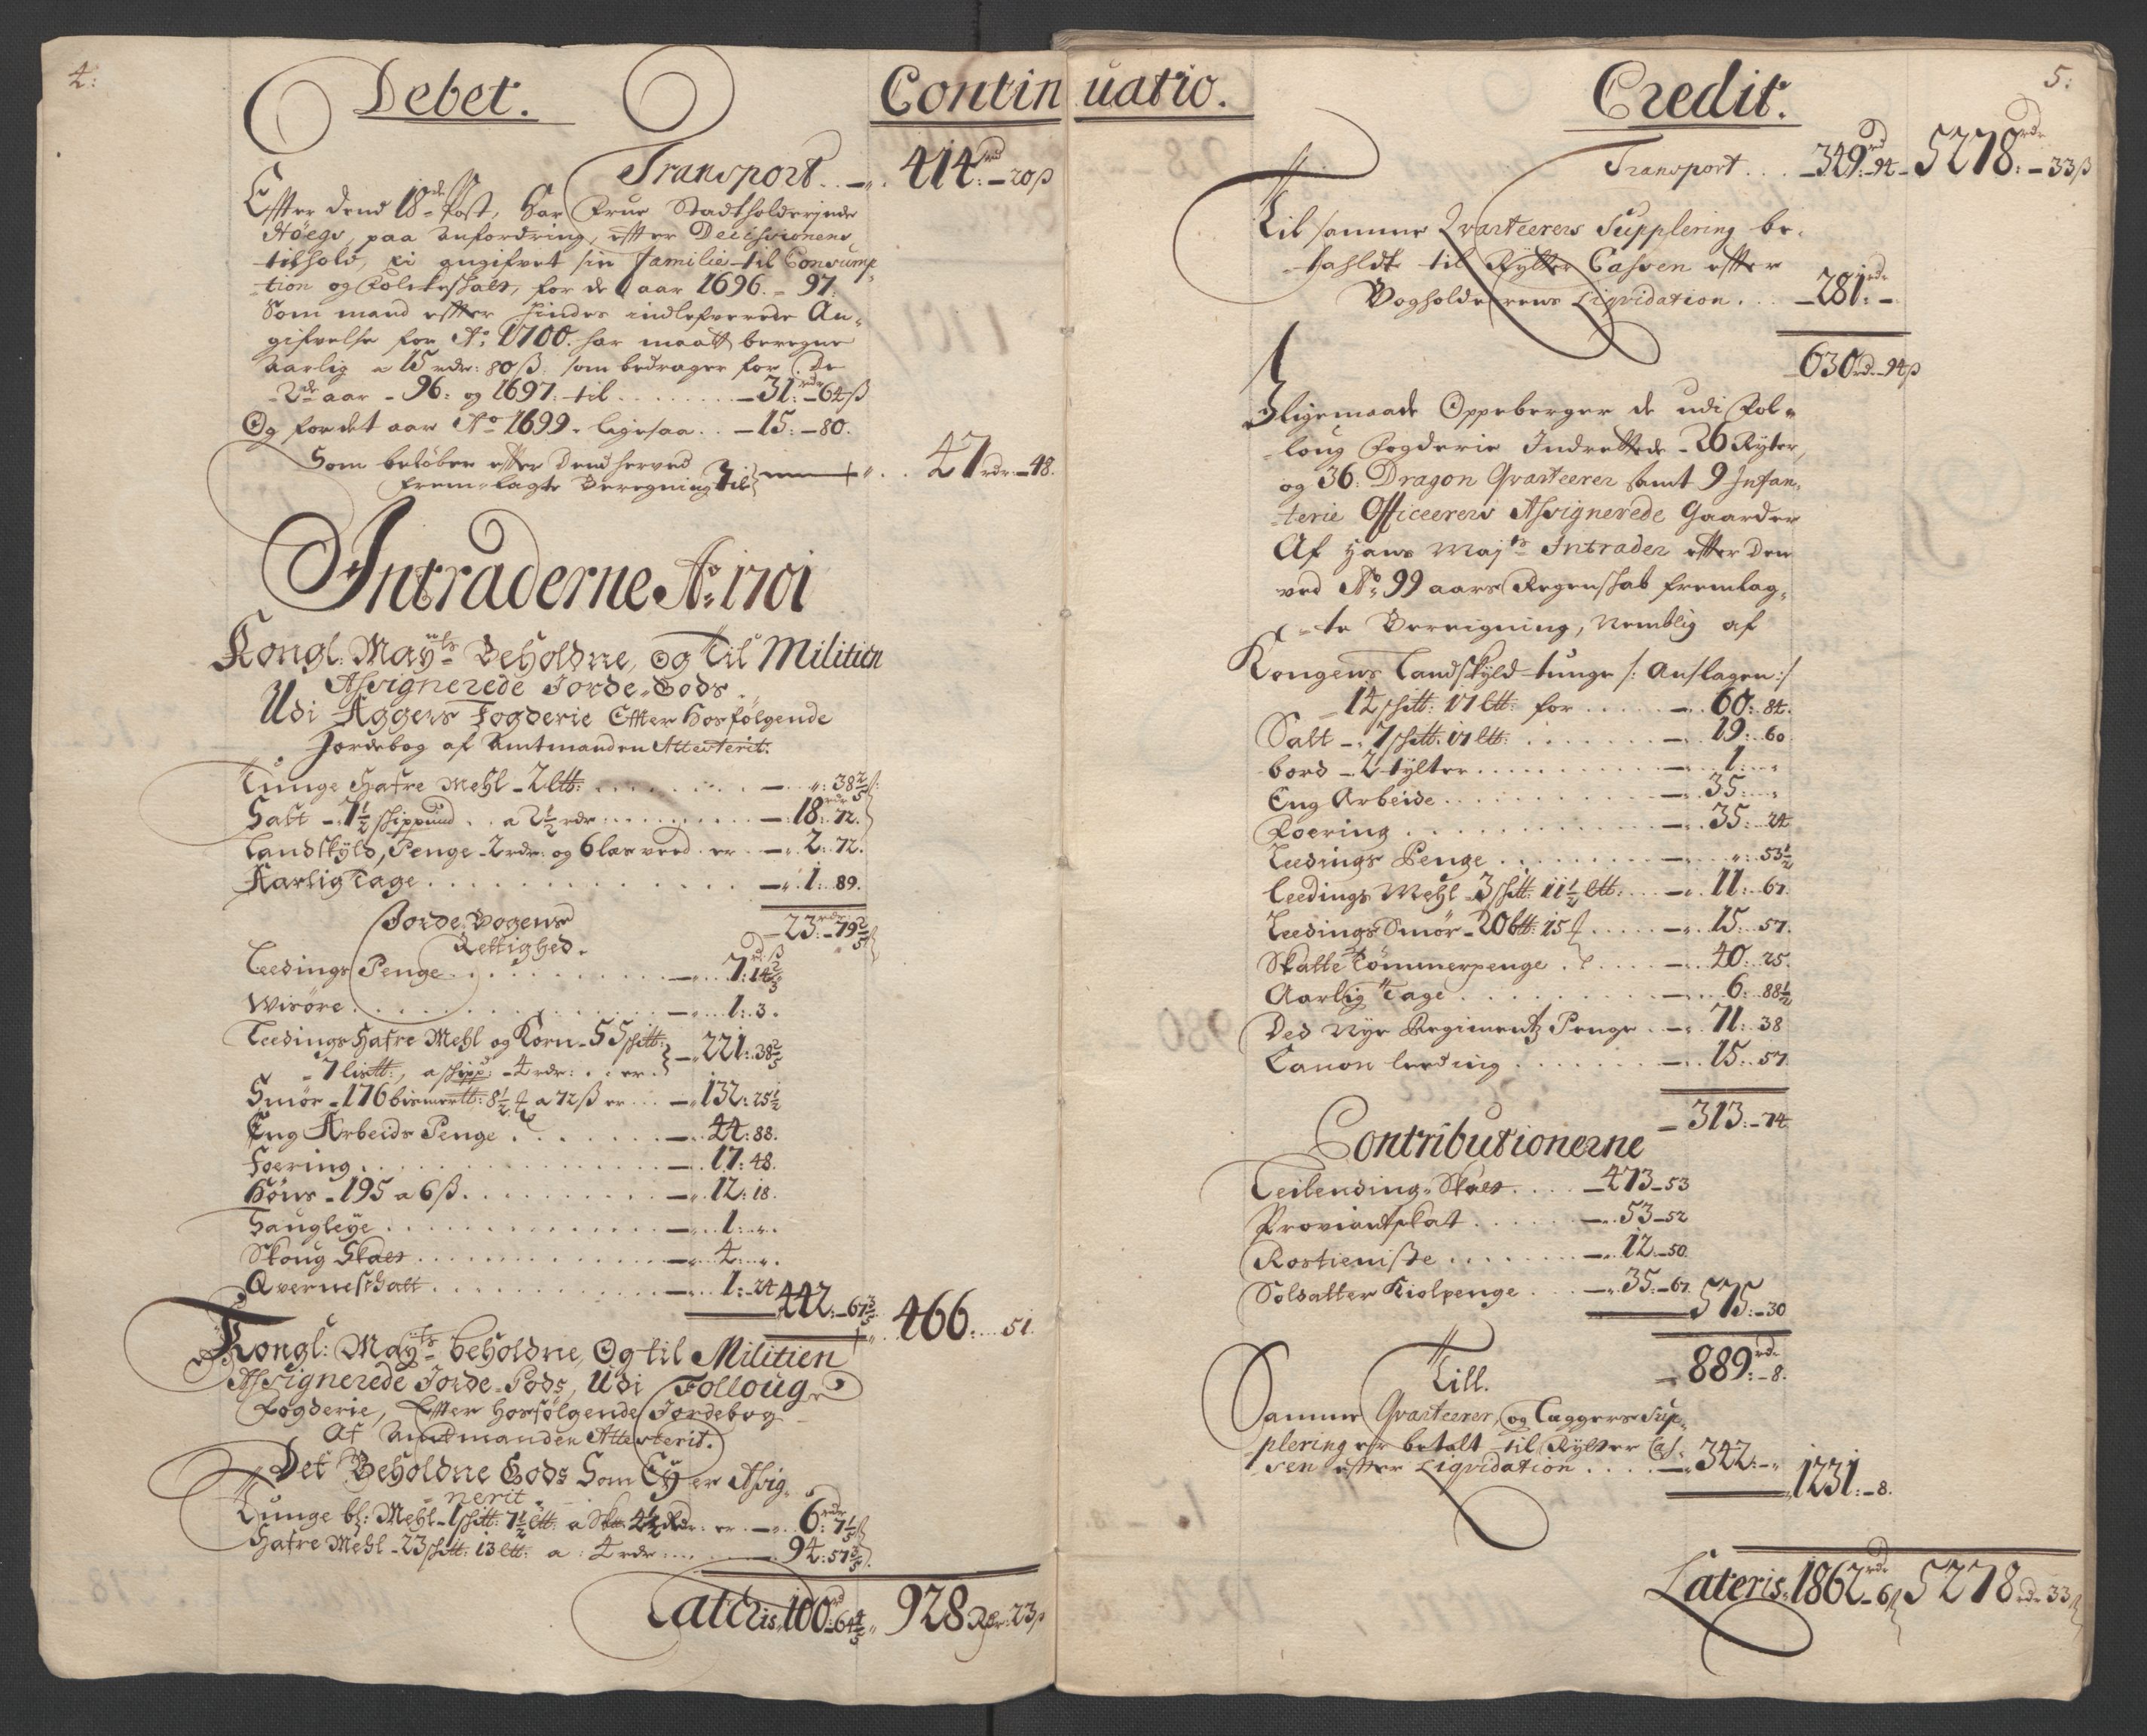 4:
Debet.
Contin
Transport . . — . 414 rd — 20 ß
Efter dend 18de Post, har Frue Stadtholderinde
Høegs, paa anfordring, efter Decissionens
tilhold, ei angifvet sin Familie til Consump
tion og Folcheskatt, for de aar 1696. - 97.
Som mand efter hindes indlefverede An-
gifvelse for Ao 1700. har maatt beregne
aarlig a 15 rdr: 80 ß. som bedrager for De
2de aar - 96: og 1697: til . . . . . . — 31: rdr — 64 ß
Og for det aar Ao 1699. ligesaa . . — 15: — 80.
Som beløber efter dend herved
frem-lagte Beregning til . . 47 rdr — 48.
Intraderne Ao: 1701
Kongl: Mayts Beholdne, og til Militien
Assignerede Jorde-Gods.
Udi Aggers Fogderie Efter hosfølgende
Jordebog af Amtmanden Attesterit.
Tunge Hafre Mehl - 2 ltt: . . . . . — „: 38 2/5 ß
Salt - 7 1/2 skippund . . a 2 1/2 rdr . . . . — 18: rdr 72.
Landskyld, Penge - 2 rdr: og 6 læs veed . er . — 2: 72.
Aarlig Tage . . . . . . . . — 1: 89.
Jorde Bogens
Rettighed.
— 23: rdr — 79 2/5 ß
Leedings Penge . . . . . . . — 7: 14 2/5
Wisøre . . . . . . . . — 1: 3.
Leedings Hafre Mehl og Korn - 55 skltt:
7 lisltt:, a skipp: - 4 rdr: . . er . — 221: 38 2/5
Smør - 176 bismertt: 8 1/2 a 72 ß er . . — 132: 25 1/2
Eng Arbeids Penge . . . . . — 44: 88.
Foering . . . . . . . . — 17: 48.
Høns - 195 a 6 ß . . . . . . . — 12: 18.
Haugleye . . . . . . . . — 1: „.
Skoug Skatt . . . . . . . — 4: „.
Qverneskatt . . . . . . . — 1: 24
442: — 67 3/5 . 466: . . . 51.
Kongl: Mayts beholdne, Og til Militien
Assignerede Jorde-Gods, Udi Folloug
Fogderie, Efter hosfølgende Jordebog
Af Amtmanden Attesterit.
Det Beholdne Gods Som Ey er Assig-
nerit.
Tunge bl: Mehl - 1 skltt: 7 1/2 ltt: a Skltt 4 1/2 Rdr: er — 6: rdr 7 1/5 ß
Hafre Mehl - 23 skltt: 13 ltt: a : 4 rdr . . . . 94: 57 3/5 ß.
Lateris 100 rd: 64 4/5 „ 928 Rdr: 23 ß
5:
uatio.
Credit.
Transport . . . — 349 rd: — 94 — 5278: rdr — 33 ß
Til samme Qvarteerers Supplering be-
tahldt til Rytter Cassen efter
Bogholderens Liqvidation . . . — 281: rdr —
630 rd — 94 ß
Ligemaade Oppeberger de udi Fol-
loug Fogderie Indrettede - 26 Rytter,
og 36: Dragon Qvarteerer samt 9 Infan-
terie Officeerers Assignerede Gaarder
Af Hans Majts Intrader efter den
ved Ao 99 aars Regenskab fremlag-
te Beregning, Nemblig af
Kongens Landskyld tunge /: Anslagen :/
14 skltt: 17 ltt: for . . . . . — 60: 84.
Salt - 7 skltt: 17 ltt: . . . . . — 19: 60
bord - 2 tylter . . . . . . . — 1: „
Eng Arbeide . . . . . . . — 35: „
Foering . . . . . . . . — 35: 24
Leedings Penge . . . . . . — „: 53 1/2
Leedings Mehl - 3 skltt: 11 1/2 ltt: . . . — 11: 67.
Leedings Smør - 20 btt: 15 . . . . . — 15: 57.
Skatte Tømmerpenge . . . . . — 40: 25.
Aarlig Tage . . . . . . . — 6: 88 1/2
Ded Nye Regimentz Penge . . — 71: 38
Canon leeding . . . . . . — 15: 57
— 313: — 74
Contributionerne
Leilending-Skatt . . . . — 473 — 53
Proviantskat . . . . . — 53 — 52
Rostieniste . . . . . . — 12 — 50
Soldatter Kiolpenge . . . — 35 — 67
575: — 30
889: rdr — 8.
Till.
Samme Qvarteerer, og Læggers Sup-
plering er betalt til Rytter Cas-
sen efter Liqvidation . . . . — 342: — „
1231: — 8.
Lateris 1862 rdr — 6 ß 5278 rdr 33 ß